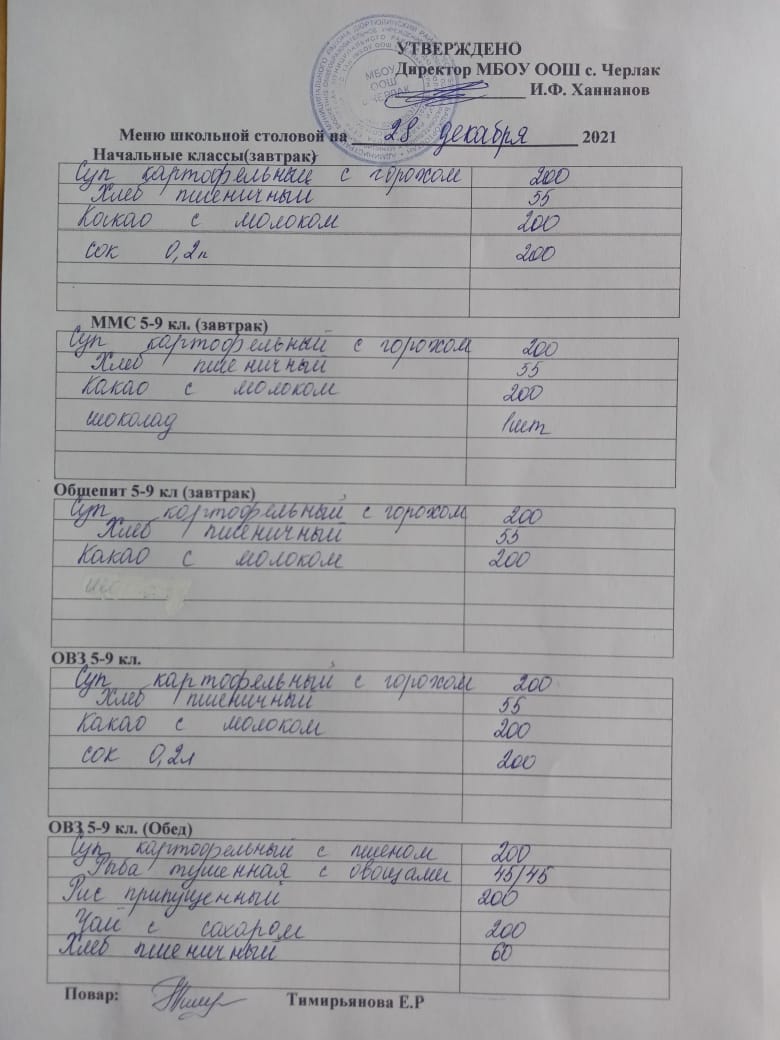 УТВЕРЖДЕНО
Директор МБОУ ООШ с. Черлак
И.Ф. Ханнанов
МБОУ ООШ ЧЕРЛАК
Меню школьной столовой на 28 декабря 2021
Начальные классы(завтрак)
Суп картофельный с горохом 200
Хлеб пшеничный 55
Какао с молоком 200
сок 0,2л 200
ММС 5-9 кл. (завтрак)
Суп картофельный с горохом 200
Хлеб пшеничный 55
Какао с молоком 200
шоколад 1шт
Общепит 5-9 кл (завтрак)
Суп картофельный с горохом 200
Хлеб пшеничный 55
Какао с молоком 200
ОВЗ 5-9 кл.
Суп картофельный с горохом 200
Хлеб пшеничный 55
Какао с молоком 200
сок 0,2л 200
ОВЗ 5-9 кл. (Обед)
Суп картофельный с пшеном 200
Рыба тушенная с овощами 45/45
Рис припущенный 200
Чай с сахаром 200
Хлеб пшеничный 60
Повар: Тимирьянова Е.Р